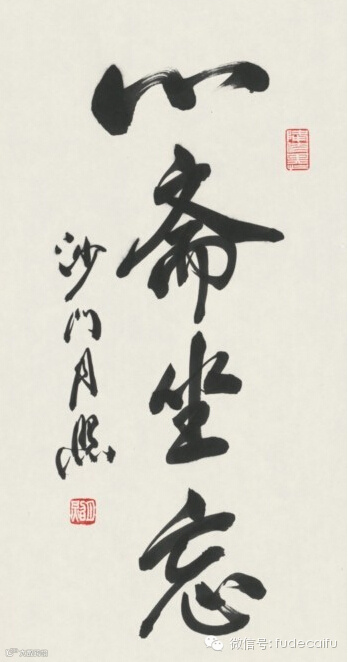 心斋坐忘
沙门月照
微信号: fudecaifu